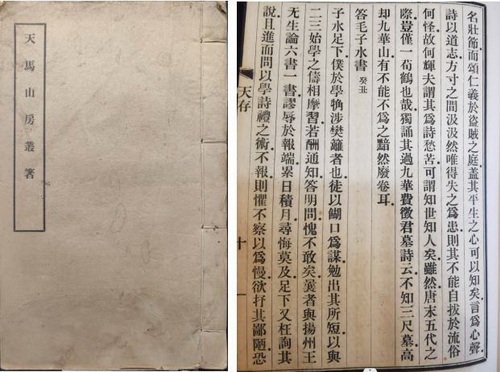 天馬山房叢著
名壯節而頌仁義於盜賊之庭蓋其平生之心可以知矣言為心聲
詩以道志方寸之間汲汲然唯得失之為患則其不能自拔於流俗
何怪故何輝夫謂其為詩愁苦可謂知世知人矣雖然唐末五代之
際豈僅一荀鶴也哉獨誦其過九華費徵君墓詩云不知三尺墓高
却九華山有不能不為之黯然廢卷耳
答毛子水書 癸丑
子水足下僕於學觕涉樊籬者也徒以餬口為謀勉出其所短以與
二三始學之儔相摩習若酬通知答明問愧不敢矣曩者與揚州王
无生論六書一書謬辱於報端累日積月尋悔莫及足下又枉詢其
說且進而問以學詩禮之術不報則懼不察以為慢欲抒其鄙陋恐
天存
十